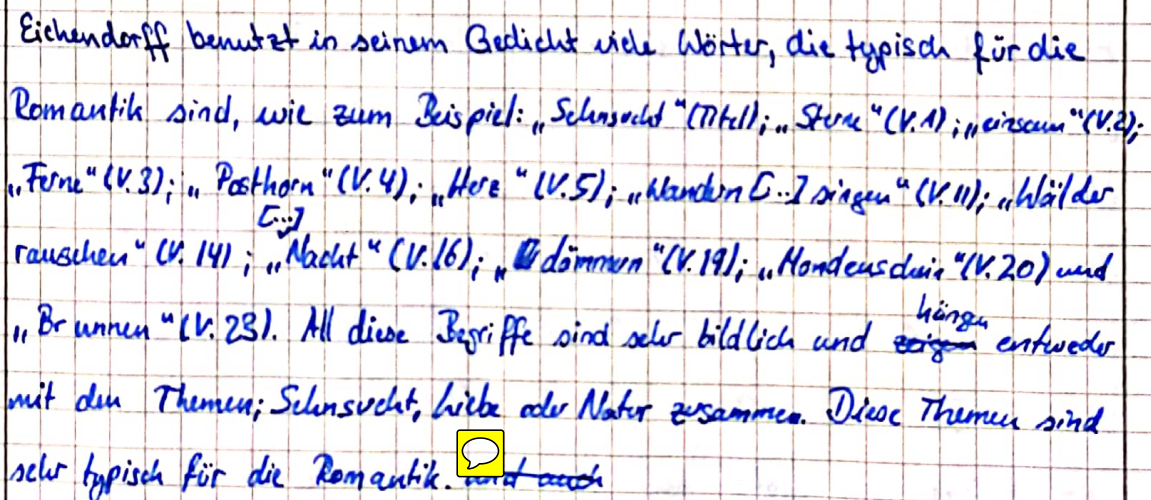 Eichendorff benutzt in seinem Gedicht viele Wörter, die typisch für die
Romantik sind, wie zum Beispiel: „Sehnsucht“ (Titel); „Sterne“ (V.1); „einsam“ (V.2);
„Ferne“ (V.3); „Posthorn“ (V.4); „Herz“ (V.5); „Wandern [...] singen“ (V.11); „Wälder
[...]
rauschen“ (V.14); „Nacht“ (V.16); „dämmern“ (V.19); „Mondenschein“ (V.20) und
hängen
„Brunnen“ (V.23). All diese Begriffe sind sehr bildlich und zeigen entweder
mit den Themen; Sehnsucht, Liebe oder Natur zusammen. Diese Themen sind
sehr typisch für die Romantik. und auch